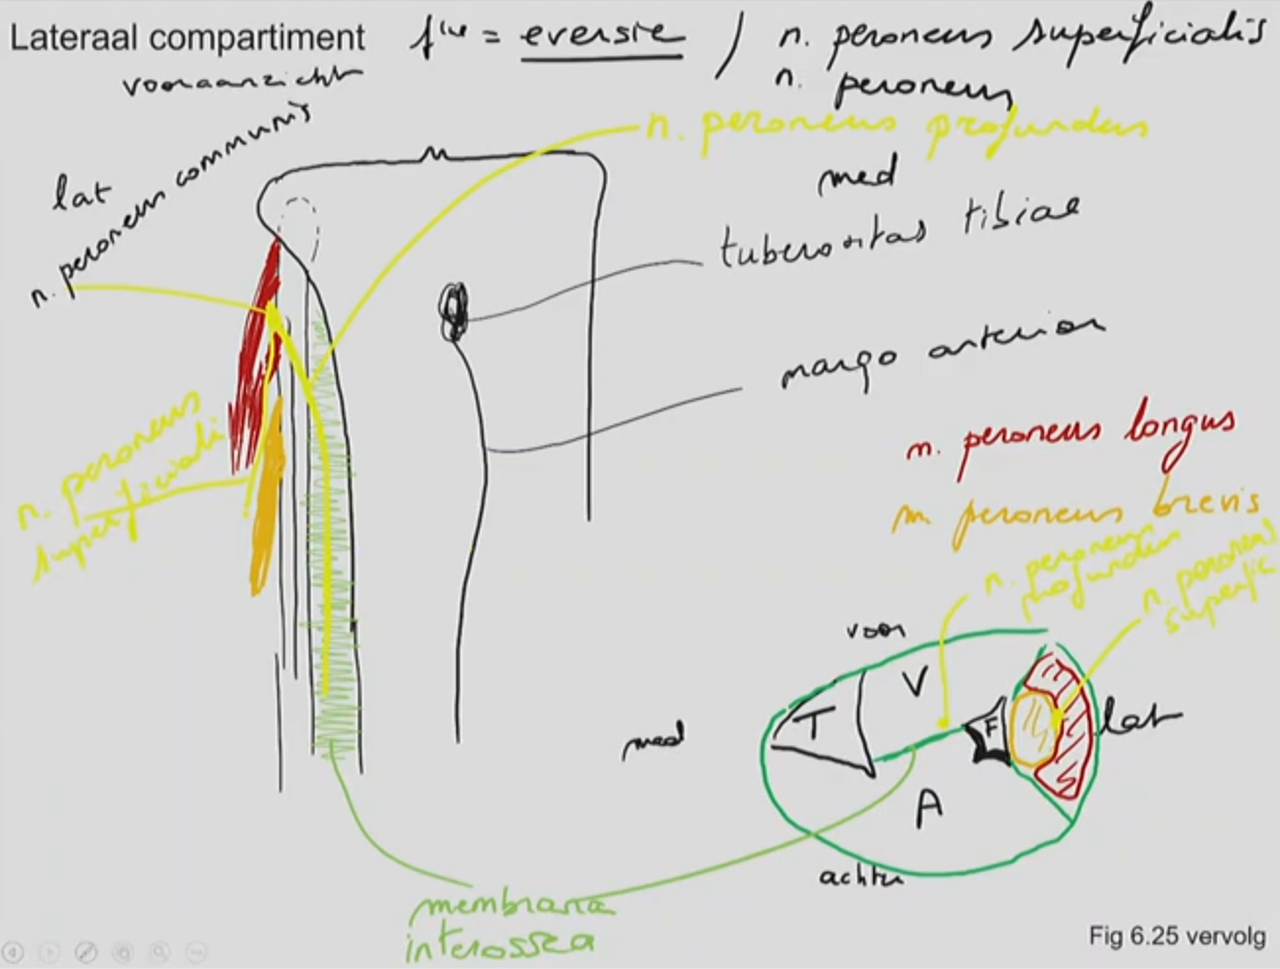 Lateraal compartiment fie = eversie / n. peroneus superficialis
vooraanzicht
n. peroneus
n. peroneus communis
n. peroneus profundus
lat
med
tuberositas tibiae
margo anterior
n. peroneus
superficialis
m. peroneus longus
m. peroneus brevis
n. peroneus
profundus
n. peroneus
superfic
voor
V
T
F
lat
med
A
achter
membrana
interossea
Fig 6.25 vervolg